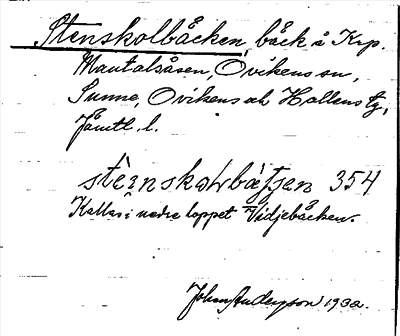 Stenskolbäcken, bäck å Krp.
Mantalsåsen, Ovikens sn,
Sunne, Ovikens och Hallens tg,
Jämtl. l.
stèinskoɫrbä̀tjen 354
Kallas i nedre loppet Vidjebäcken.
Johan Anderzon 1932